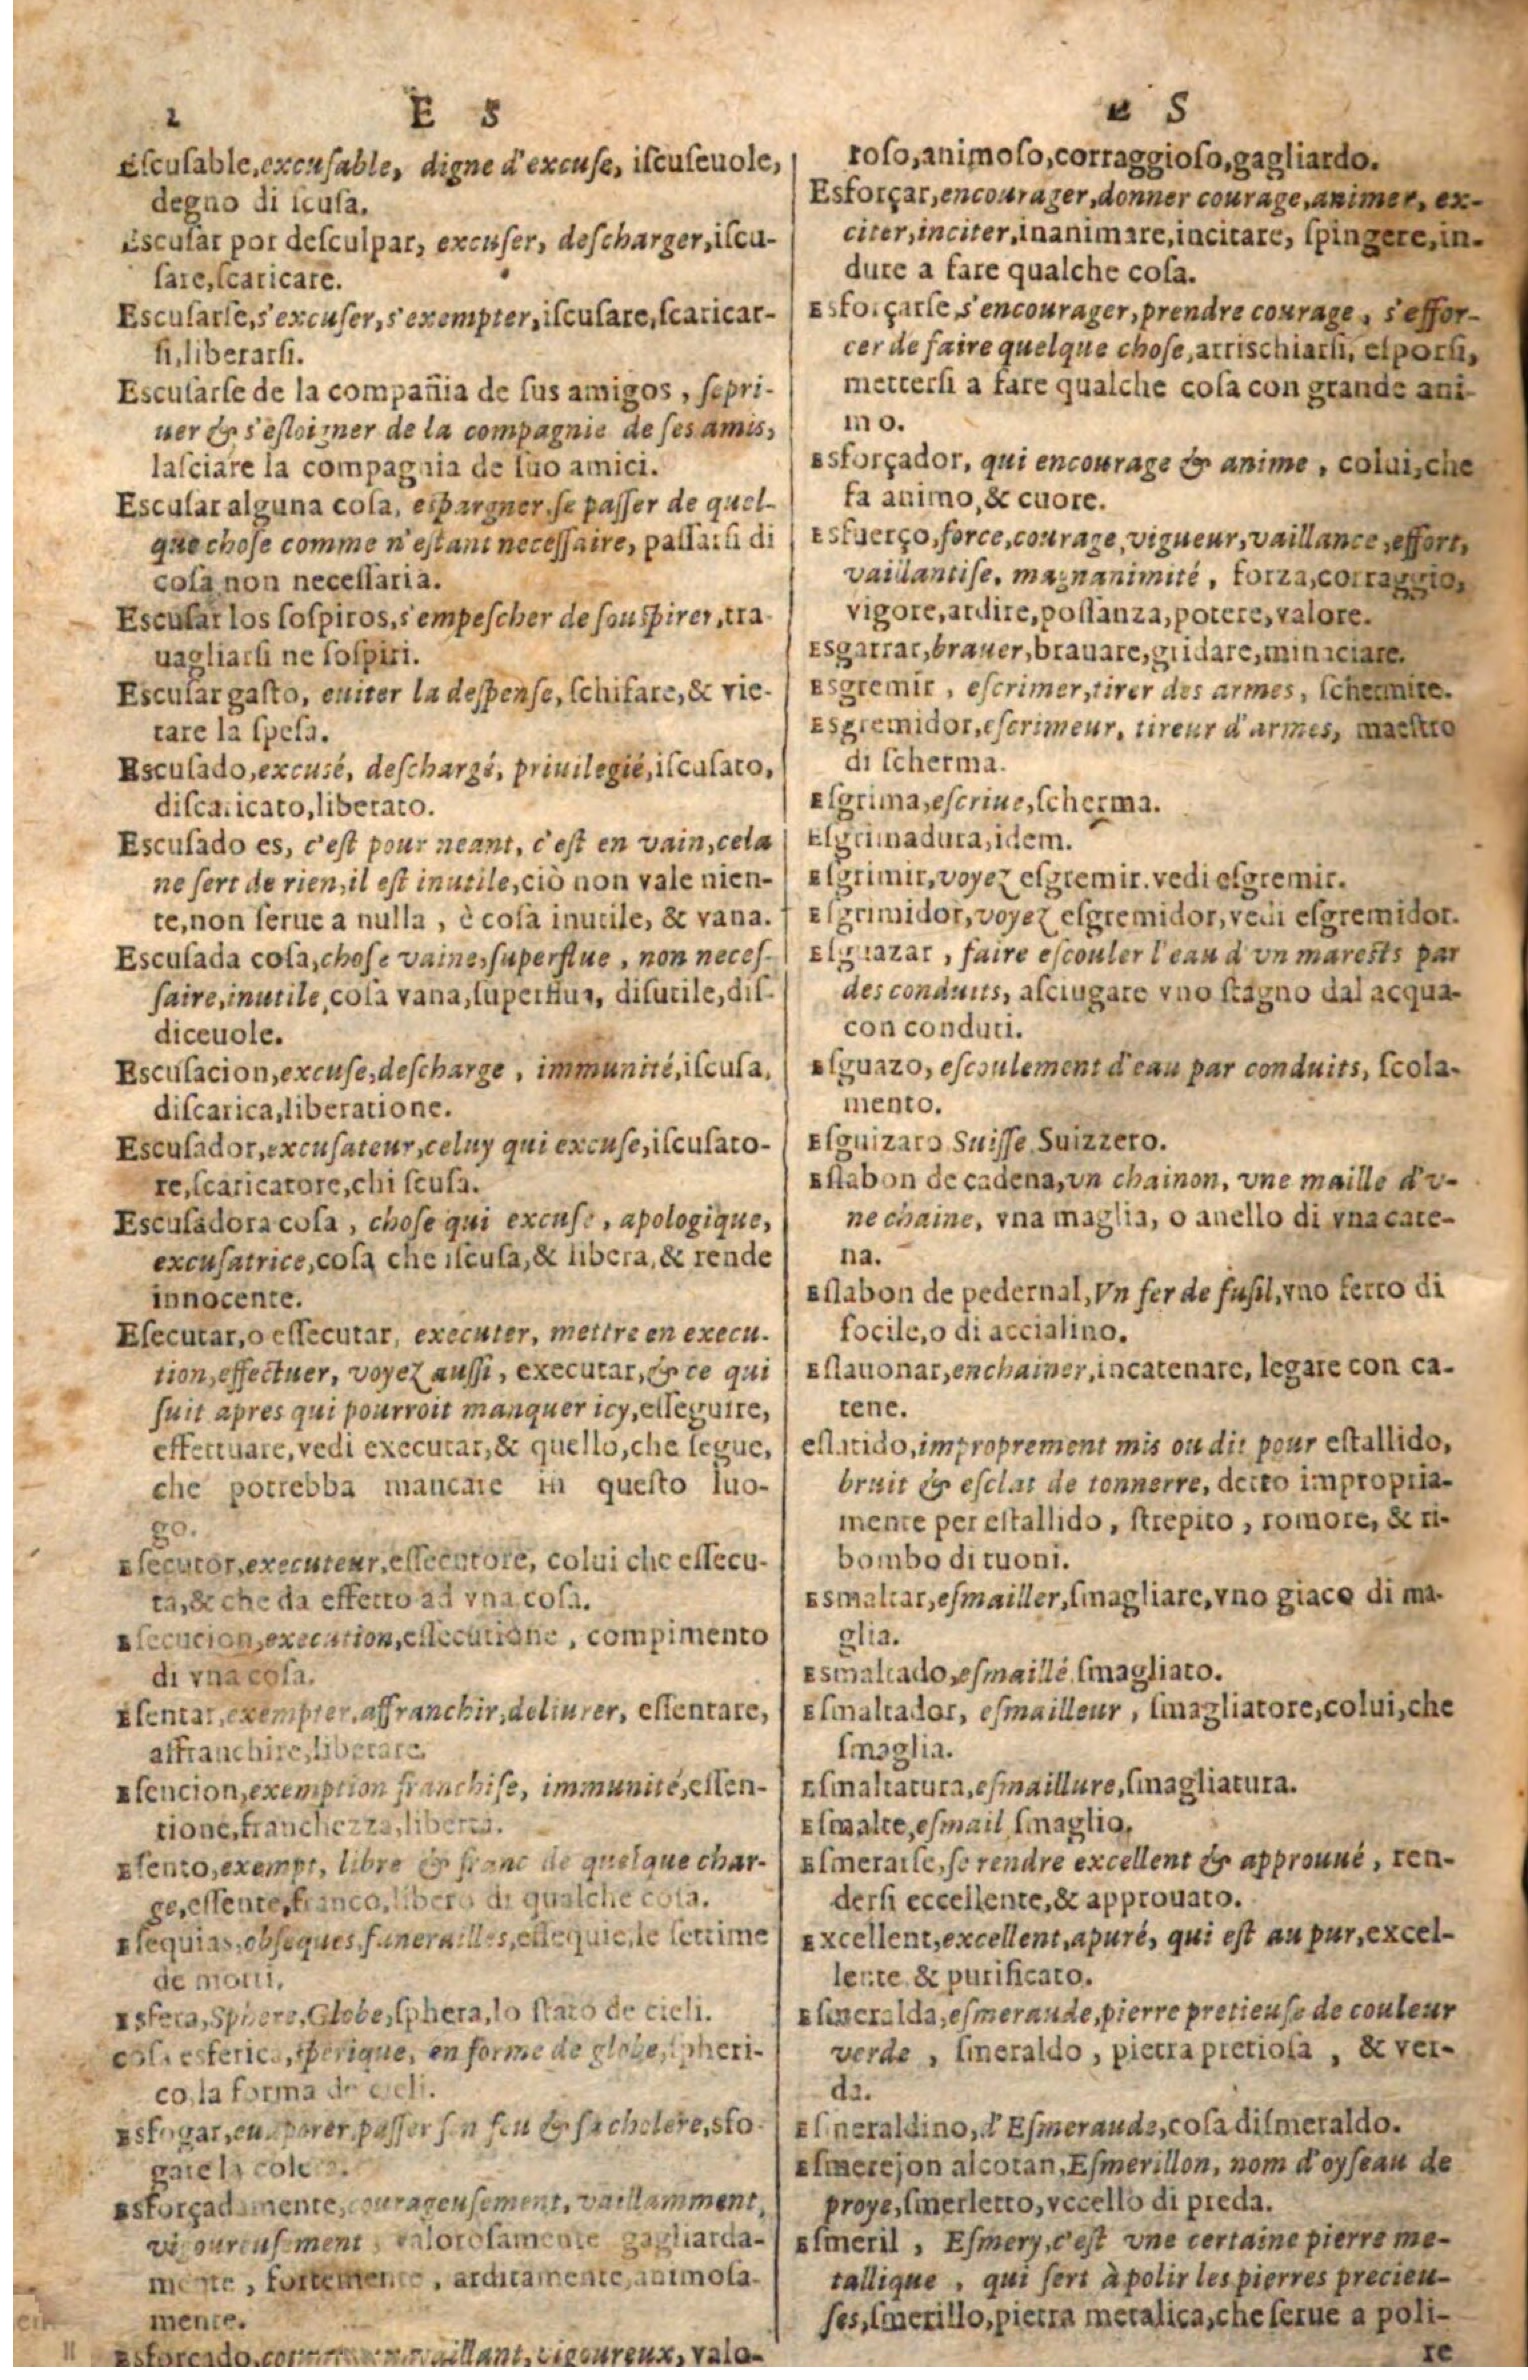 2 E S
Escusable, excusable, digne d'excuse, iscuseuole,
degno di scusa.
Escusar por desculpar, excuser, descharger, iscu-
sare, scaricare.
Escusarse, s'excuser, s'exempter, iscusare, scaricar-
si, liberarsi.
Escusarse de la compañia de sus amigos, se pri-
uer & s'esloigner de la compagnie de ses amis,
lasciare la compagnia de suo amici.
Escusar alguna cosa, espargner, se passer de quel-
que chose comme n'estant necessaire, passarsi di
cosa non necessaria.
Escusar los sospiros, s'empescher de souspirer, tra-
uagliarsi ne sospiri.
Escusar gasto, euiter la despense, schifare, & vie-
tare la spesa.
Escusado, excusé, deschargé, priuilegié, iscusato,
discaricato, liberato.
Escusado es, c'est pour neant, c'est en vain, cela
ne sert de rien, il est inutile, ciò non vale nien-
te, non serue a nulla, è cosa inutile, & vana.
Escusada cosa, chose vaine, superflue, non neces-
saire, inutile, cosa vana, superflua, disutile, dis-
diceuole.
Escusacion, excuse, descharge, immunité, iscusa,
discarica, liberatione.
Escusador, excusateur, celuy qui excuse, iscusato-
re, scaricatore, chi scusa.
Escusadora cosa, chose qui excuse, apologique,
excusatrice, cosa che iscusa, & libera, & rende
innocente.
Esecutar, o essecutar, executer, mettre en execu-
tion, effectuer, voyez aussi, executar, & ce qui
suit apres qui pourroit manquer icy, esseguire,
effettuare, vedi executar, & quello, che segue,
che potrebba mancare in questo luo-
go.
Esecutor, executeur, essecutore, colui che essecu-
ta, & che da effetto ad vna cosa.
Esecucion, execution, essecutione, compimento
di vna cosa.
Esentar, exempter, affranchir, deliurer, essentare,
affranchire, liberare.
Esencion, exemption franchise, immunité, essen-
tione, franchezza, liberta.
Esento, exempt, libre & franc de quelque char-
ge, essente, franco, libero di qualche cosa.
Esequias, obseques, funerailles, essequie, le settime
de morti.
Esfera, Sphere, Globe, sphera, lo stato de cieli.
cosa esferica, sperique, en forme de globe, spheri-
co, la forma de cieli.
Esfogar, euaporer, passer son feu & sa cholere, sfo-
gare la colera.
Esforçadamente, courageusement, vaillamment,
vigoureusement, valorosamente gagliarda-
mente, fortemente, arditamente, animosa-
mente.
Esforçado, vaillant, vigoureux, valo-
E S
roso, animoso, corraggioso, gagliardo.
Esforçar, encourager, donner courage, animer, ex-
citer, inciter, inanimare, incitare, spingere, in-
dure a fare qualche cosa.
Esforçarse, s'encourager, prendre courage, s'effor-
cer de faire quelque chose, arrischiarsi, esporsi,
mettersi a fare qualche cosa con grande ani-
mo.
Esforçador, qui encourage & anime, colui, che
fa animo, & cuore.
Esfuerço, force, courage, vigueur, vaillance, effort,
vaillantise, magnanimité, forza, corraggio,
vigore, ardire, possanza, potere, valore.
Esgarrar, brauer, brauare, gridare, minaciare.
Esgremir, escrimer, tirer des armes, schermire.
Esgremidor, escrimeur, tireur d'armes, maestro
di scherma.
Esgrima, escrime, scherma.
Esgrimadura, idem.
Esgrimir, voyez esgremir. vedi esgremir.
Esgrimidor, voyez esgremidor, vedi esgremidor.
Esguazar, faire escouler l'eau d'vn marests par
des conduits, asciugare vno stagno dal acqua-
con conduti.
Esguazo, escoulement d'eau par conduits, scola-
mento.
Esguizaro Suisse, Suizzero.
Eslabon de cadena, vn chainon, vne maille d'v-
ne chaine, vna maglia, o anello di vna cate-
na.
Eslabon de pedernal, Vn fer de fusil, vno ferro di
focile, o di accialino.
Eslauonar, enchainer, incatenare, legare con ca-
tene.
eslatido, improprement mis ou dit pour estallido,
bruit & esclat de tonnerre, detto impropria-
mente per estallido, strepito, romore, & ri-
bombo di tuoni.
Esmaltar, esmailler, smagliare, vno giaco di ma-
glia.
Esmaltado, esmaillé smagliato.
Esmaltador, esmailleur, smagliatore, colui, che
smaglia.
Esmaltatura, esmaillure, smagliatura.
Esmalte, esmail, smaglio.
Esmerarse, se rendre excellent & approuué, ren-
dersi eccellente, & approuato.
Excellent, excellent, apuré, qui est au pur, excel-
lente & purificato.
Esmeralda, esmeraude, pierre pretieuse de couleur
verde, smeraldo, pietra pretiosa, & ver-
da.
Esmeraldino, d'Esmeraude, cosa di smeraldo.
Esmerejon alcotan, Esmerillon, nom d'oyseau de
proye, smerletto, vccello di preda.
Esmeril, Esmery, c'est vne certaine pierre me-
tallique, qui sert à polir les pierres precieu-
ses, smerillo, pietra metalica, che serue a poli-
re